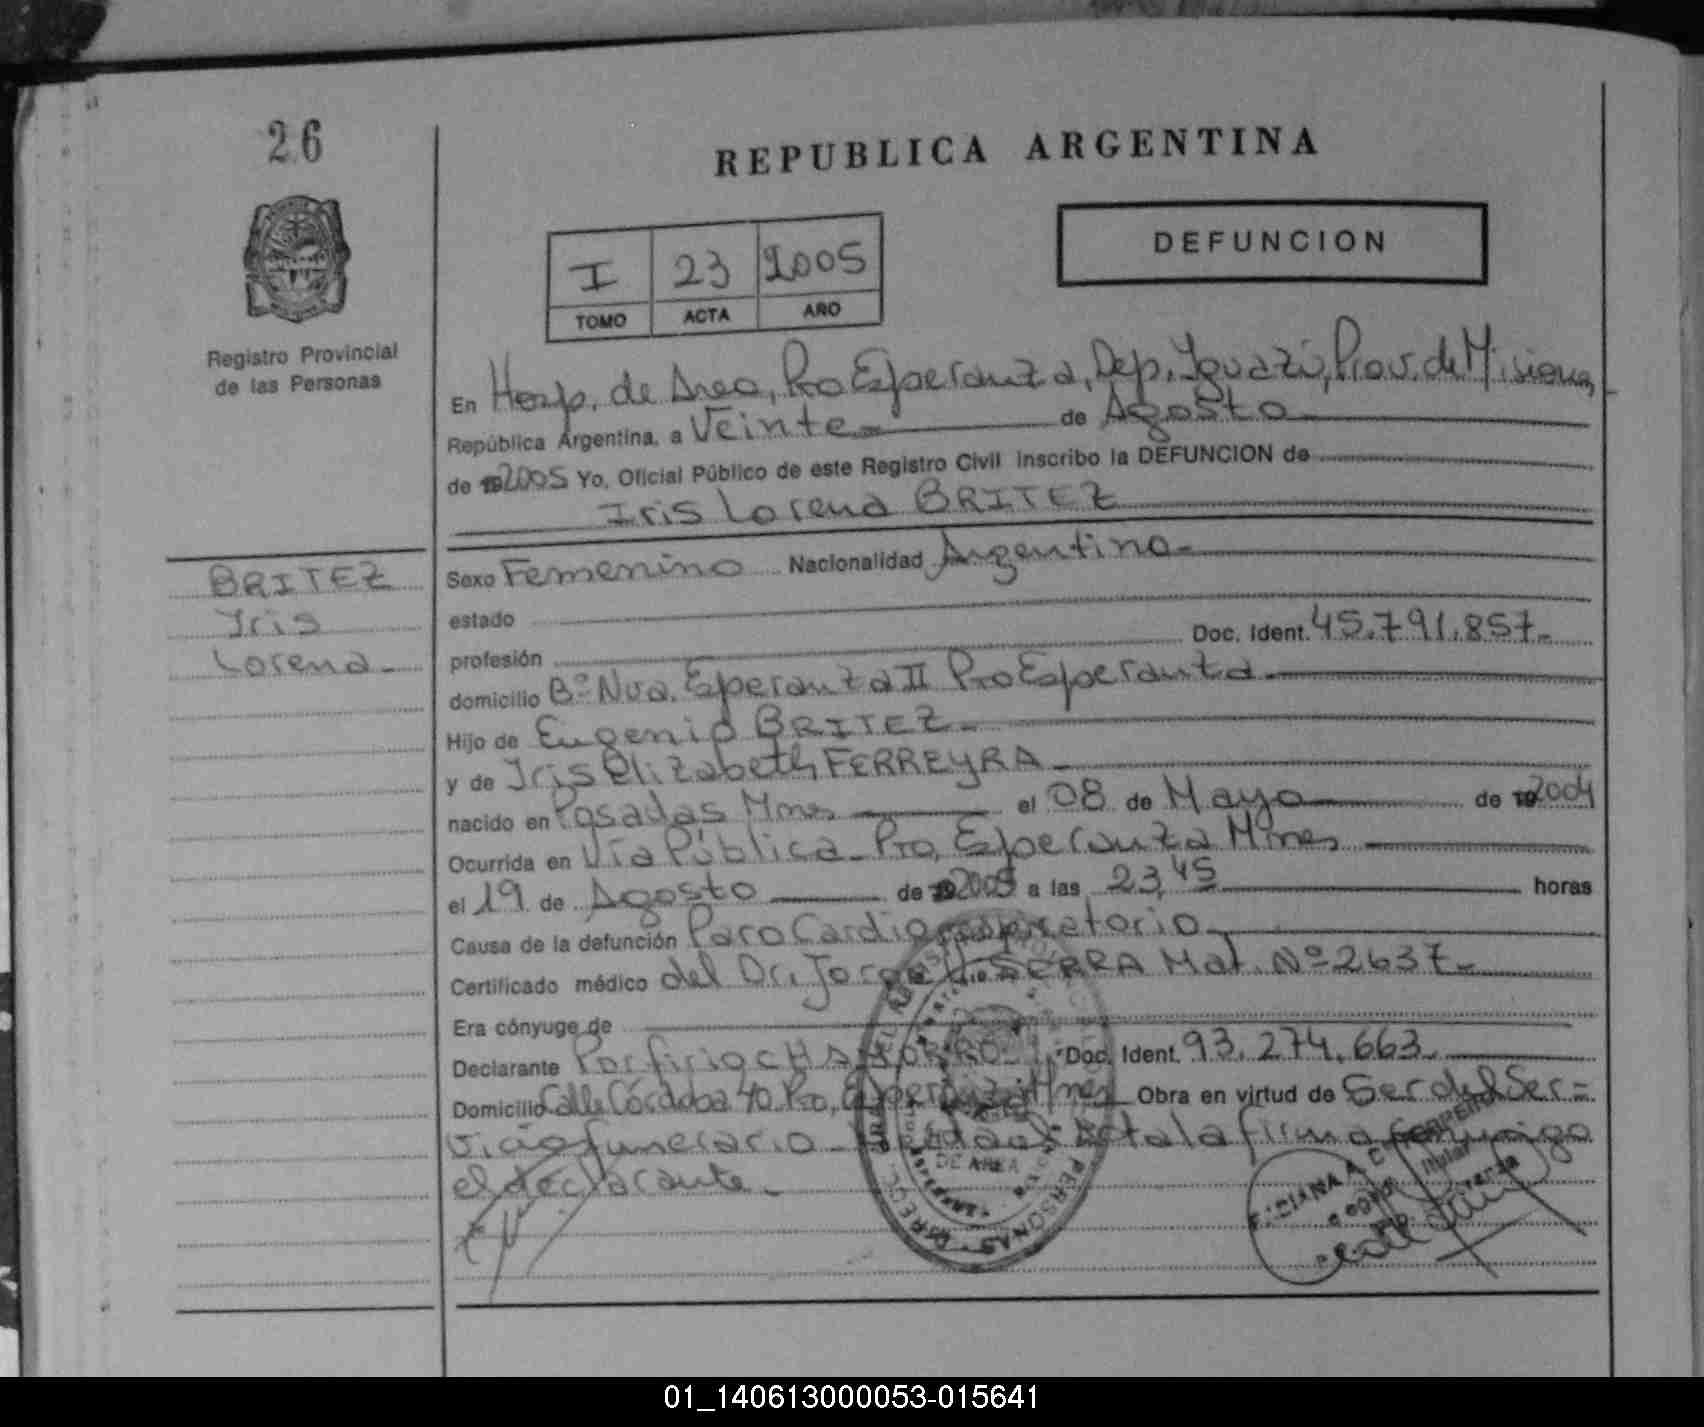 26
REPUBLICA ARGENTINA
DEFUNCION
I 23 2005
TOMO ACTA AÑO
Registro Provincial
de las Personas
En Hosp. de Area, Pto Esperanza, Dep. Iguazú, Prov. de Misiones
República Argentina, a Veinte de Agosto
de 2005 Yo, Oficial Público de este Registro Civil inscribo la DEFUNCION de
Iris Lorena BRITEZ
BRITEZ
Iris
Lorena
Sexo Femenino Nacionalidad Argentina
estado
profesión Doc. Ident. 45.791.857
domicilio Bº Nva. Esperanza II Pto Esperanza
Hijo de Eugenio BRITEZ
y de Iris Elizabeth FERREYRA
nacido en Posadas Mnes el 08 de Mayo de 2004
Ocurrida en Vía Pública Pto. Esperanza Mnes
el 19 de Agosto de 2005 a las 23,45 horas
Causa de la defunción Paro Cardiorespiretorio
Certificado médico del Dr. Jorge SERRA Mat. Nº 2637
Era cónyuge de
Declarante Porfirio CHAMORRO Doc. Ident. 93.274.663
Domicilio Calle Córdoba 70 Pto. Esperanza Mnes Obra en virtud de Ser del Ser=
vicio funerario Leída el Acta la firma conmigo
el declarante
DE AREA
PERSONAS
01_140613000053-015641